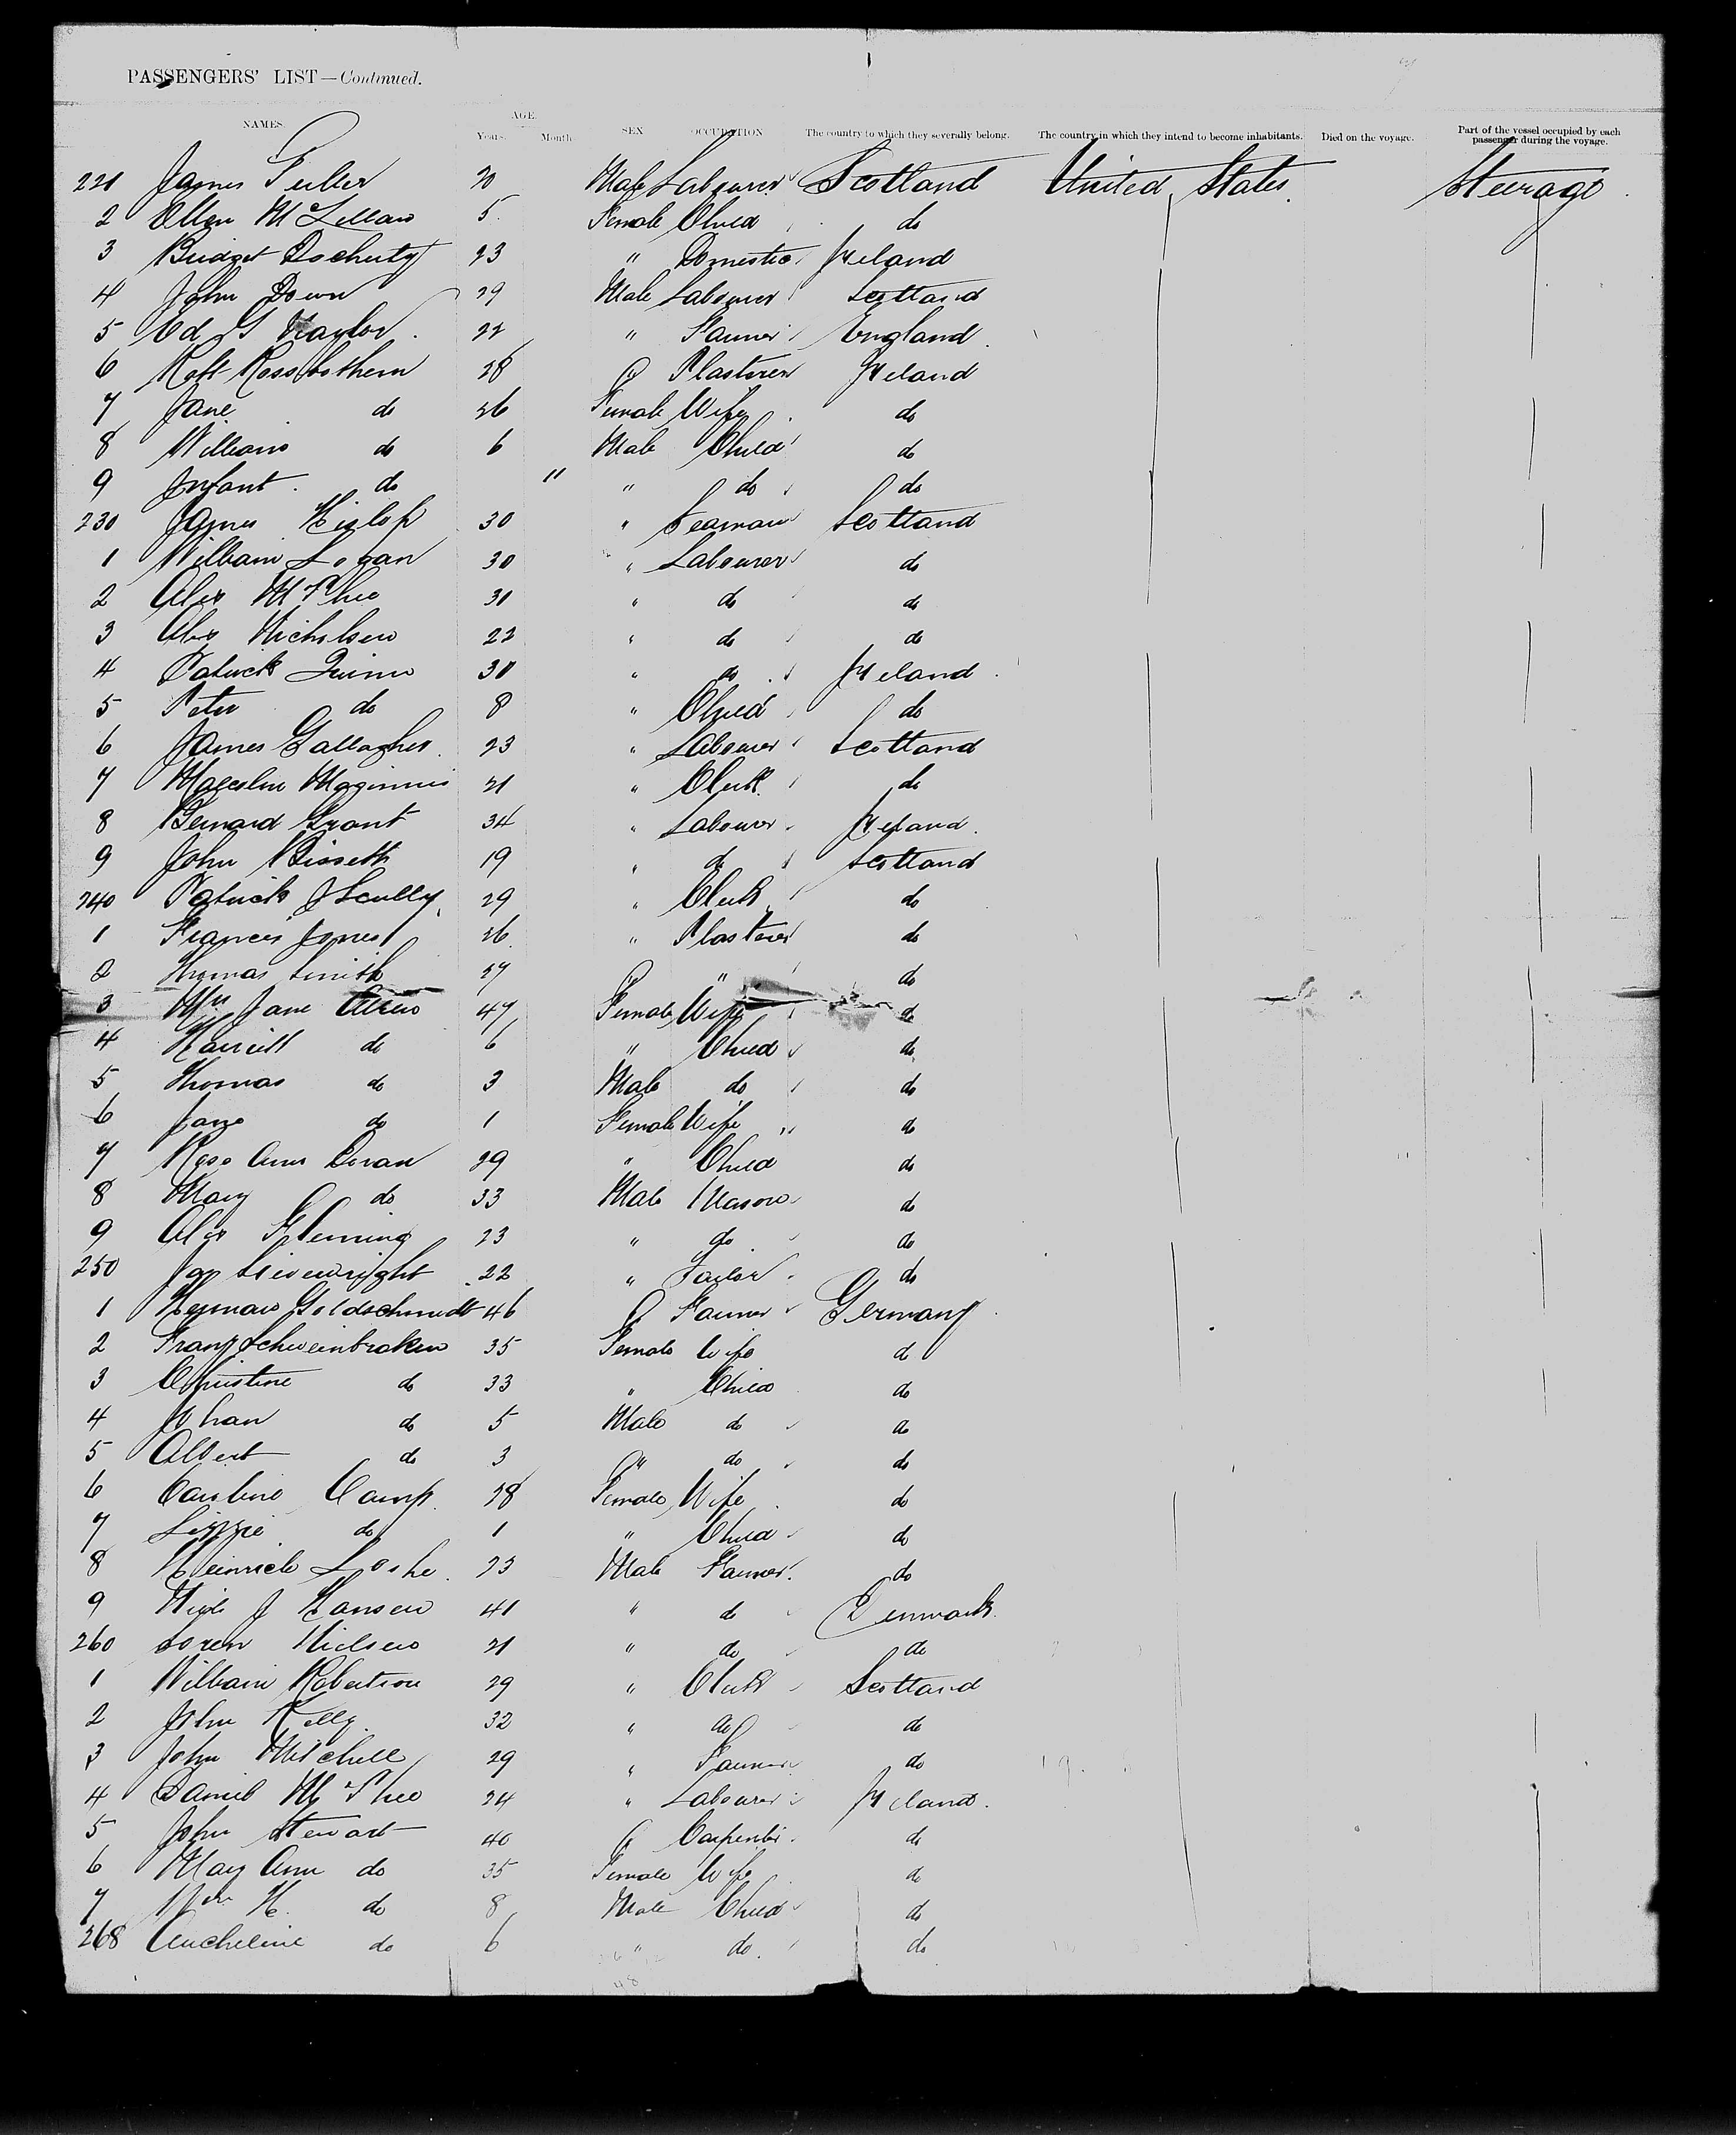 PASSENGERS' LIST—Continued.
NAMES. AGE. Years. Month SEX OCCUPATION The country to which they severally belong. The country in which they intend to become inhabitants. Died on the voyage. Part of the vessel occupied by each passenger during the voyage.
221 James 20 Male Labourer Scotland United States. Steerage
2 Ellen McLellan 5 Female Child do
3 Bridget Docherty 23 " Domestic Ireland
4 John Down 29 Male Labourer Scotland
5 Ed G Naylor 22 " Farmer England
6 Robt Rossbothem 28 " Plasterer Ireland
7 Jane do 26 Female Wife do
8 William do 6 Male Child do
9 Infant do " " do do
230 James Hislop 30 " Seaman Scotland
1 William Logan 30 " Labourer do
2 Alex McPhee 31 " do do
3 Alex Nicholson 22 " do do
4 Patrick Quinn 30 " do Ireland
5 Peter do 8 " Child do
6 James Gallagher 23 " Labourer Scotland
7 Malcolm Maginnis 21 " Clerk do
8 Bernard Grant 34 " Labourer Ireland
9 John Bissett 19 " do Scotland
240 Patrick J Scully 29 " Clerk do
1 Francis Jones 26 " Plasterer do
2 Thomas Smith 27 " " do
3 Mrs Jane 47 Female Wife do
4 Harriett do 6 " Child do
5 Thomas do 3 Male do do
6 Jane do 1 Female Wife do
7 Rose Ann Doran 29 " Child do
8 Mary do 33 Male Mason do
9 Alex Fleming 23 " do do
250 Jas Sievewright 22 " Tailor do
1 Herman Goldschmidt 46 " Farmer Germany
2 Franz Schweinbraken 35 Female Wife do
3 Christine do 33 " Child do
4 Johan do 5 Male do do
5 Albert do 3 " do do
6 Caroline Camp 28 Female Wife do
7 Lizzie do 1 " Child do
8 Heinrich Loshe 23 Male Farmer do
9 Niels J Hansen 41 " do Denmark
260 Soren Nielsen 21 " do do
1 William Robertson 29 " Clerk Scotland
2 John Kelly 32 " do do
3 John Mitchell 29 " Farmer do
4 Daniel McPhee 24 " Labourer Ireland
5 John Stewart 40 " Carpenter do
6 Mary Ann do 35 Female Wife do
7 Wm H. do 8 Male Child do
268 do 6 " do do
48